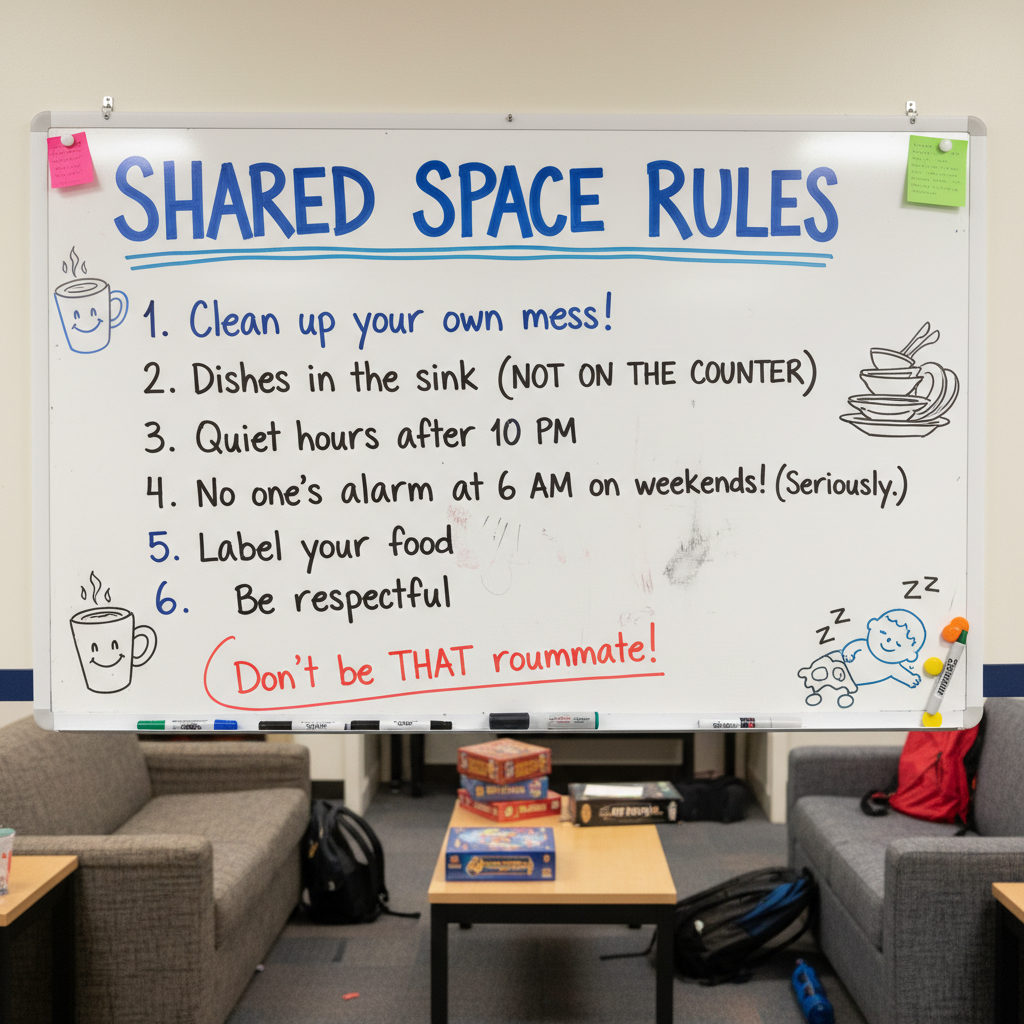 SHARED SPACE RULES
1. Clean up your own mess!
2. Dishes in the sink (NOT ON THE COUNTER)
3. Quiet hours after 10 PM
4. No one's alarm at 6 AM on weekends! (Seriously.)
5. Label your food
6. Be respectful
Don't be THAT roummate!
zz
zz